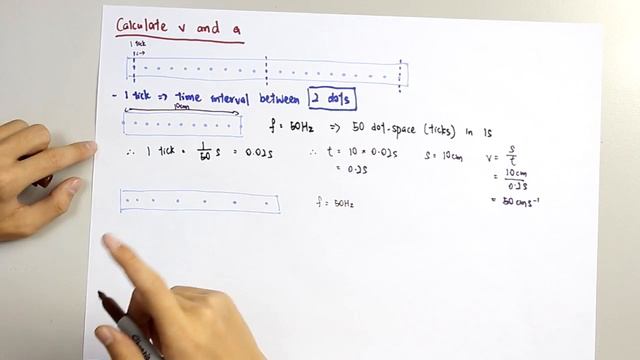 Calculate v and a
1 tick
- 1 tick => time interval between 2 dots
10cm
f = 50Hz => 50 dot-space (ticks) in 1s
∴ 1 tick = 1/50 s = 0.02s
∴ t = 10 × 0.02s
= 0.2s
s = 10cm
v = s/t
= 10cm/0.2s
= 50 cms⁻¹
f = 50Hz